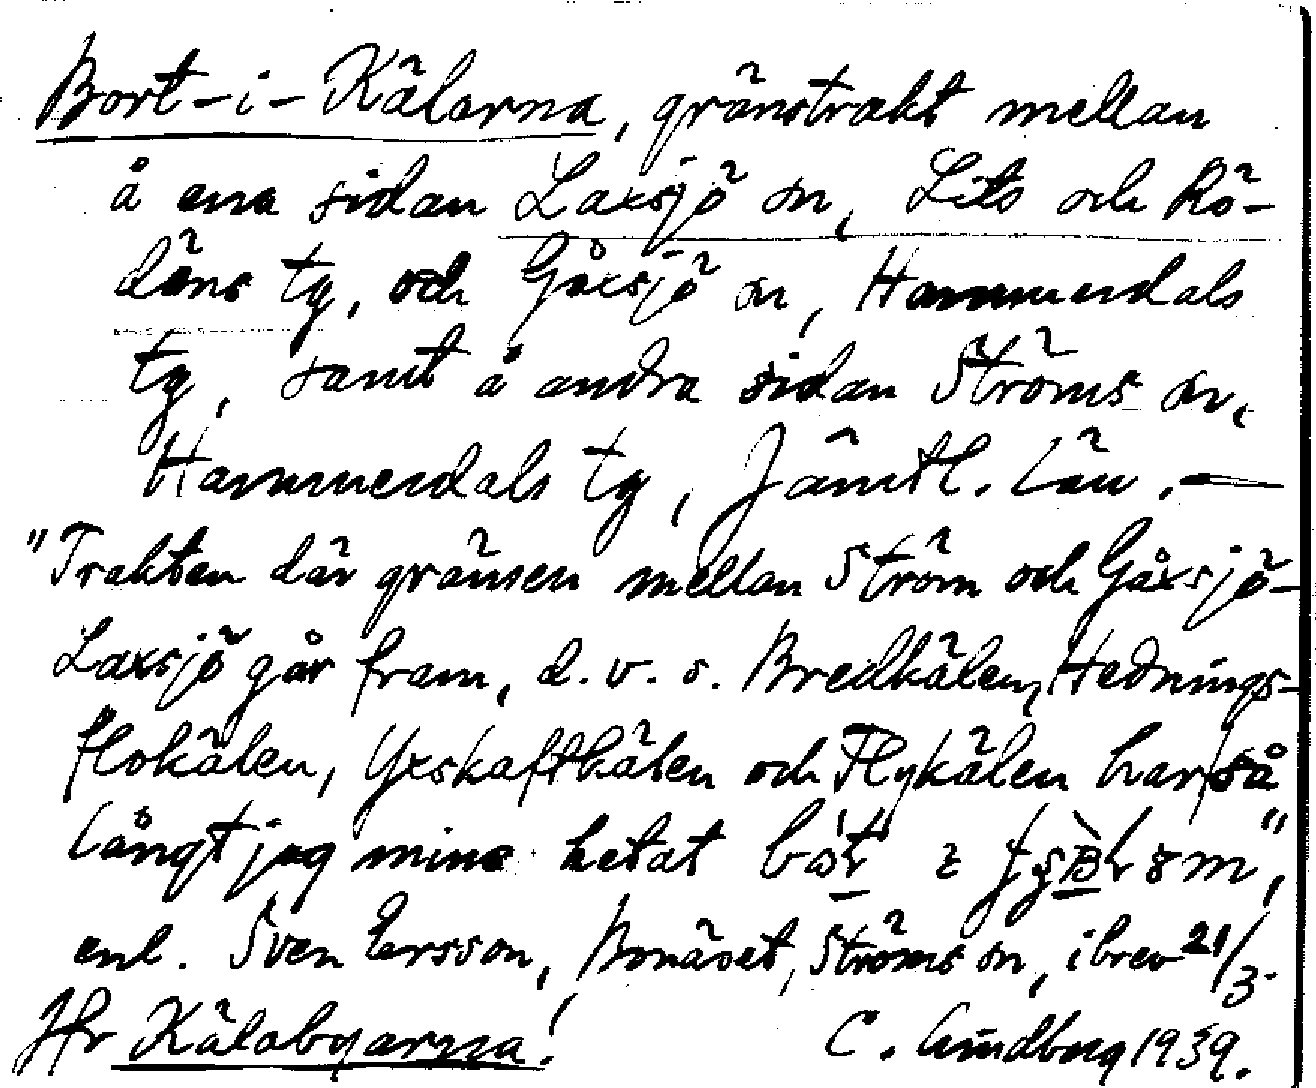 Bort-i-Kälarna, gränstrakt mellan
å ena sidan Laxsjö sn, Lits och Rö-
döns tg, och Gåxsjö sn, Hammerdals
tg, samt å andra sidan Ströms sn,
Hammerdals tg, Jämtl. län. —
"Trakten där gränsen mellan Ström och Gåxsjö-
Laxsjö går fram, d.v.s. Bredkälen, Hednings-
flokälen, Yxskaftkälen och Flykälen har så
långt jag mins hetat
enl. Sven Ersson, Bonäset, Ströms sn, i brev 21/3.
Jfr Kälabyarna! C. Lindberg 1939.